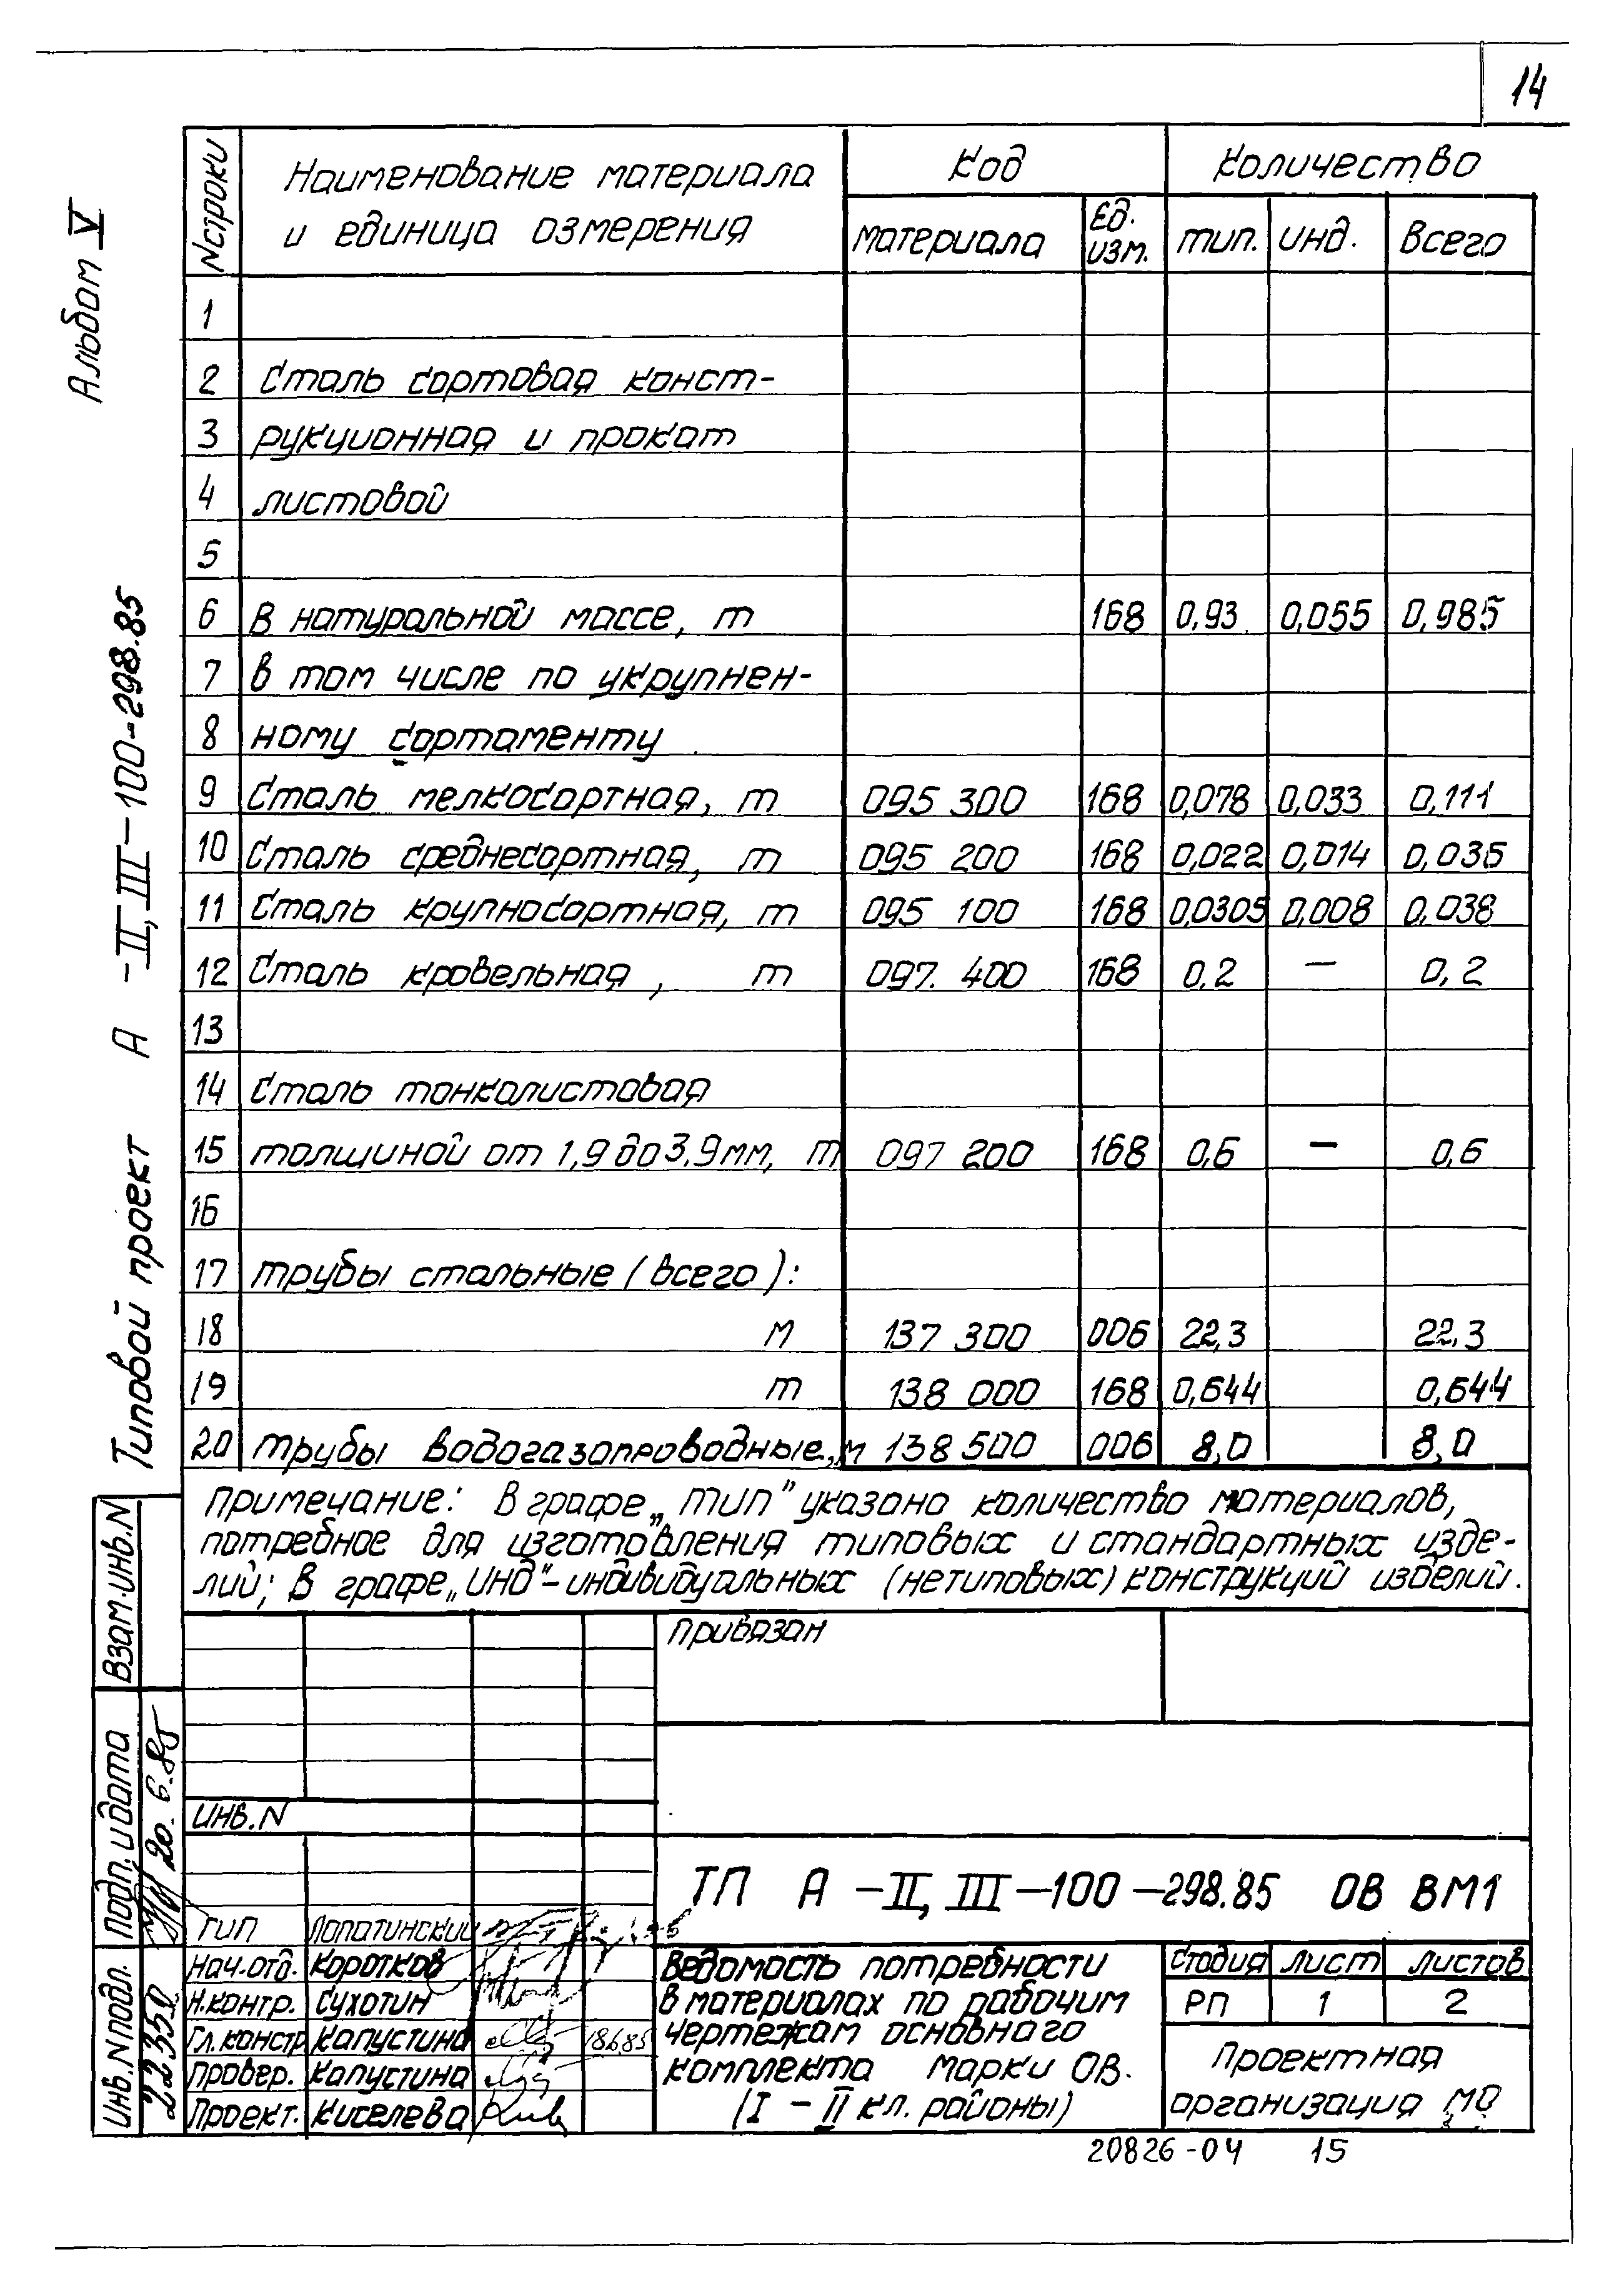 14
Альбом V
Типовой проект А -II, III-100-298.85
N строки
Наименование материала
и единица озмерения
Код
Количество
материала
Ед.
изм.
тип.
инд.
всего
1
2 Сталь сортовая конст-
3 рукционная и прокат
4 листовой
5
6 В натуральной массе, т 168 0,93 0,055 0,985
7 в том числе по укрупнен-
8 ному сортаменту
9 Сталь мелкосортная, т 095 300 168 0,078 0,033 0,111
10 Сталь среднесортная, т 095 200 168 0,022 0,014 0,036
11 Сталь крупносортная, т 095 100 168 0,0305 0,008 0,038
12 Сталь кровельная, т 097. 400 168 0,2 — 0,2
13
14 Сталь тонколистовая
15 толщиной от 1,9 до 3,9 мм, т 097 200 168 0,6 — 0,6
16
17 трубы стальные (всего):
18 м 137 300 006 22,3 22,3
19 т 138 000 168 0,644 0,644
20 трубы водогазопроводные, м 138 500 006 8,0 8,0
Примечание: В графе „тип" указано количество материалов,
потребное для изготовления типовых и стандартных изде-
лий; в графе „инд"-индивидуальных (нетиповых) конструкций изделий.
Привязан
Инв. N
ТП А -II, III-100-298.85 ОВ ВМ1
ГИП Лопатинский
Нач.отд. Коротков
Н.контр. Сухотин
Гл.констр Капустина 18.6.85
Провер. Капустина
Проект. Киселева
Ведомость потребности
в материалах по рабочим
чертежам основного
комплекта марки ОВ.
(I - II кл. районы)
Стадия Лист Листов
РП 1 2
Проектная
организация МО
Взам.инв.N
Подп. и дата
20.6.85
Инв.N подл.
22350
20826-04 15